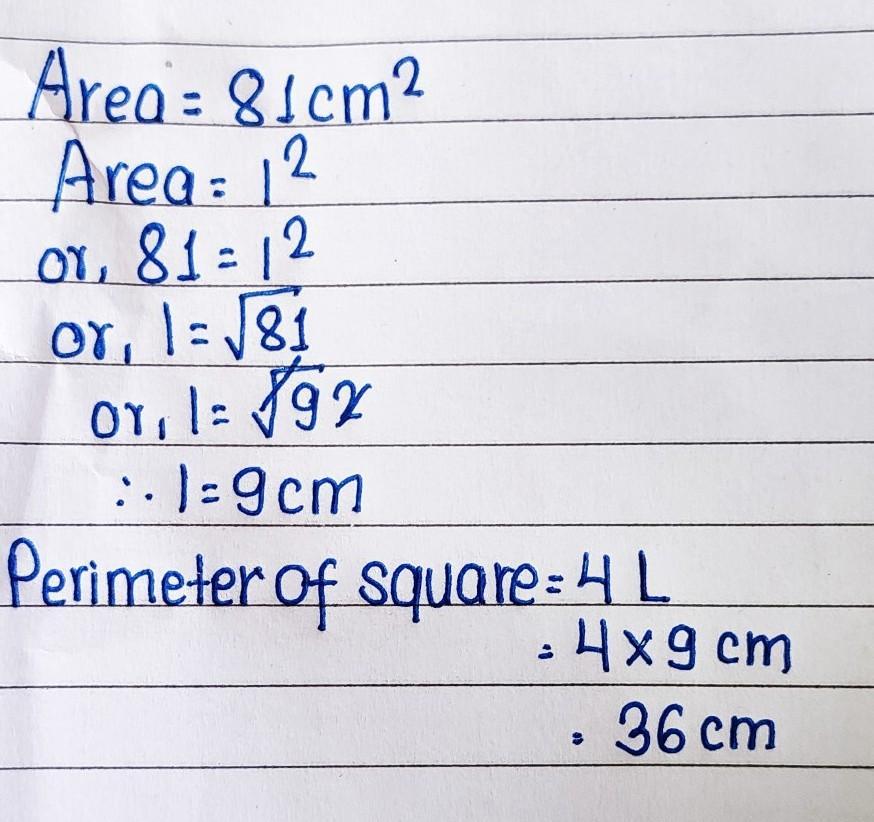 Area = 81cm²
Area = l²
or, 81 = l²
or, l = √81
or, l = √9²
∴ l = 9cm
Perimeter of square = 4 L
= 4 x 9 cm
= 36 cm